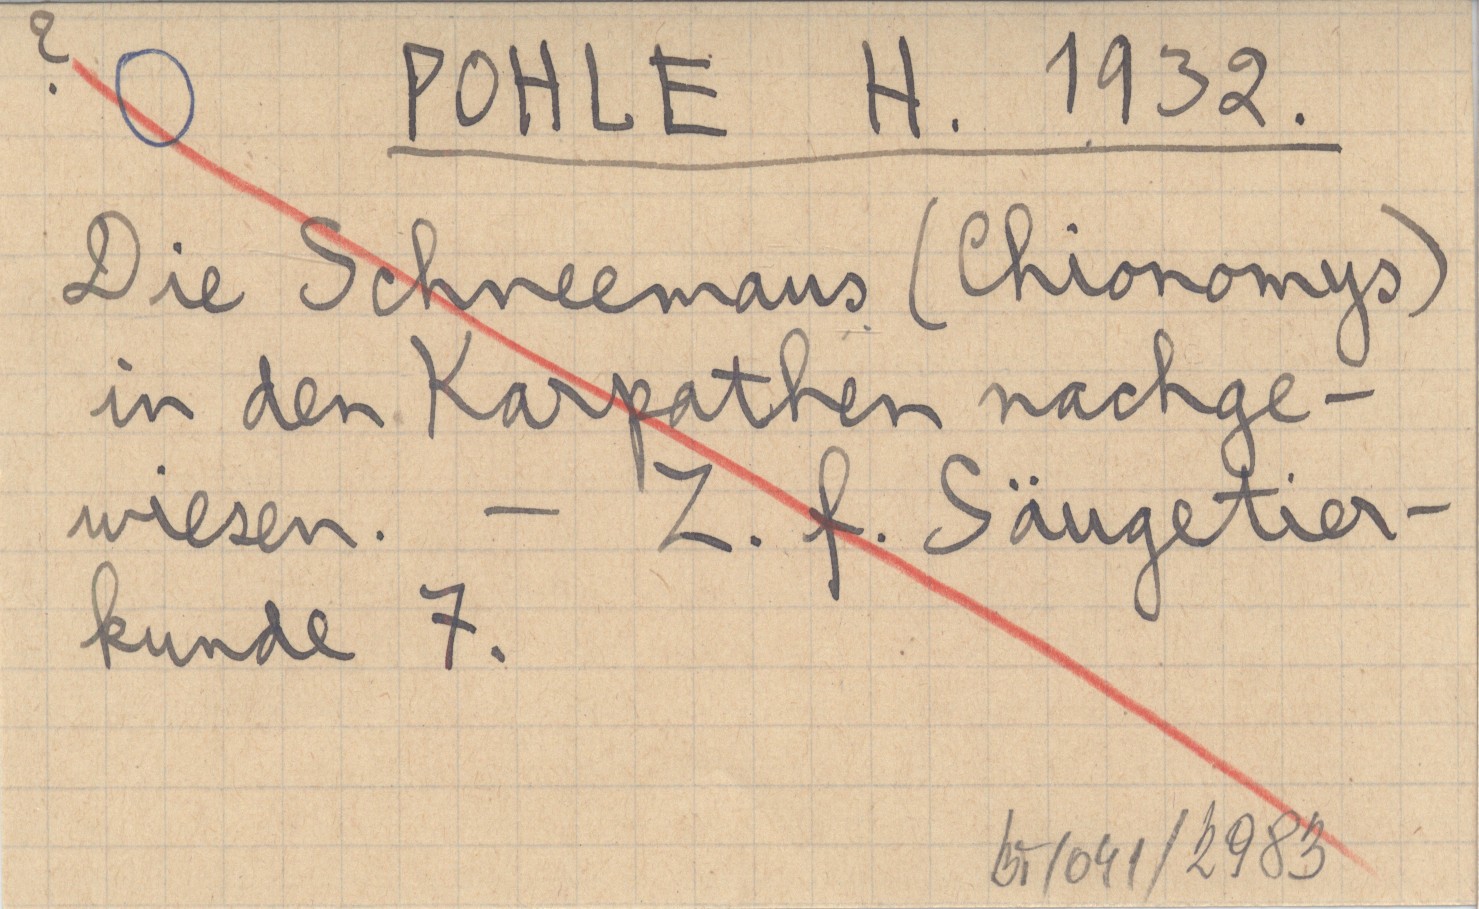 ?
POHLE H. 1932.
Die Schneemaus (Chionomys)
in den Karpathen nachge-
wiesen. – Z. f. Säugetier-
kunde 7.
/041/2983